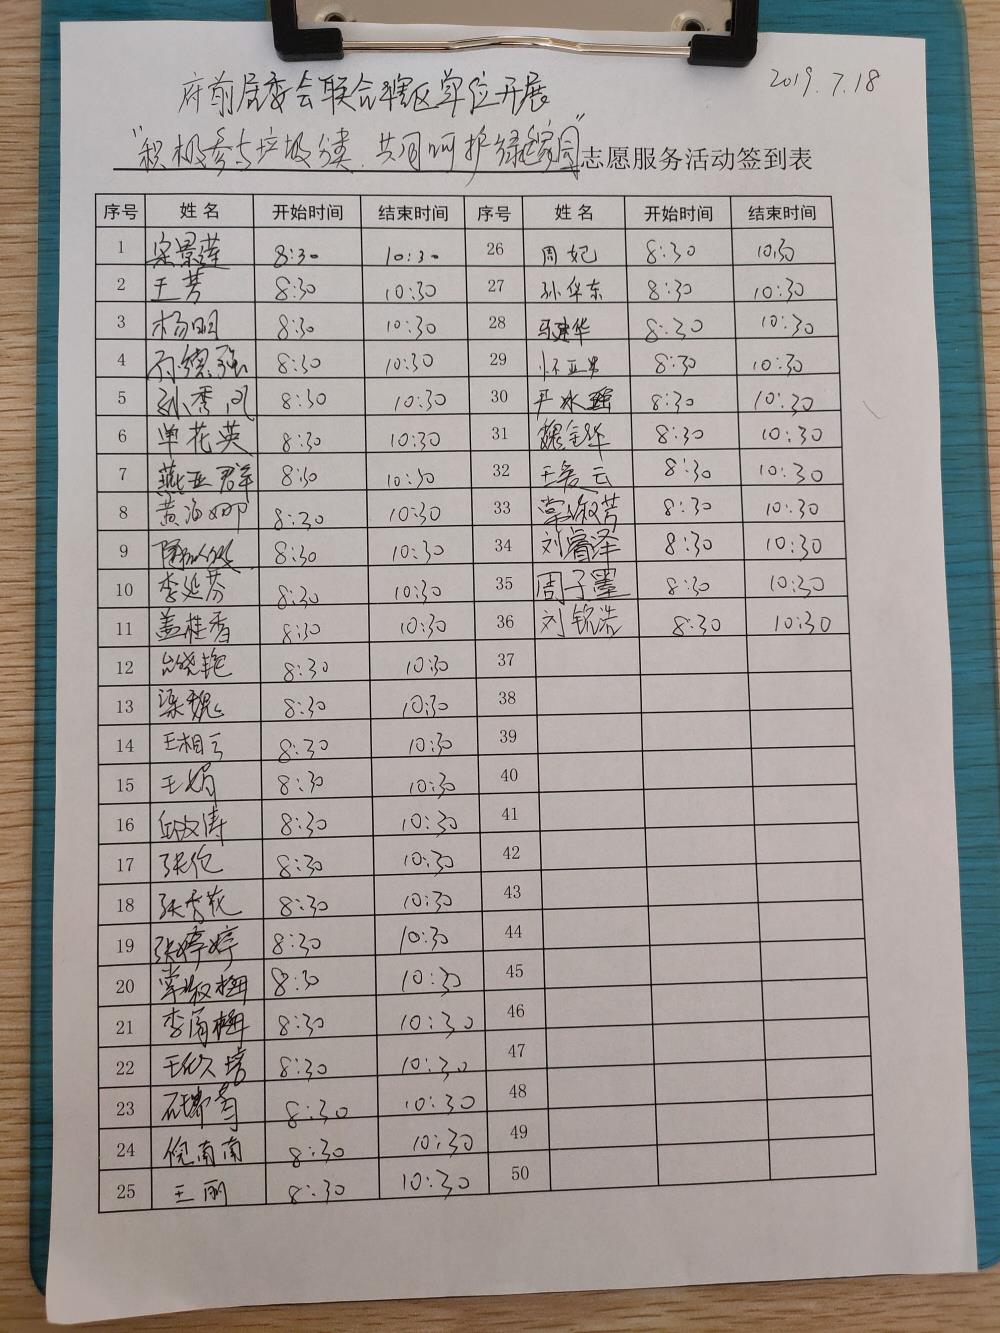 2019.7.18
府前居委会联合辖区单位开展
"积极参与垃圾分类、共同呵护绿色家园"志愿服务活动签到表
序号 姓名 开始时间 结束时间 序号 姓名 开始时间 结束时间
1 宋景莲 8:30 10:30 26 周妃 8:30 10:30
2 王芳 8:30 10:30 27 孙华东 8:30 10:30
3 杨明 8:30 10:30 28 马建华 8:30 10:30
4 8:30 10:30 29 怀亚男 8:30 10:30
5 孙秀凤 8:30 10:30 30 严冰 8:30 10:30
6 单花英 8:30 10:30 31 魏金华 8:30 10:30
7 燕亚群 8:30 10:30 32 王爱云 8:30 10:30
8 黄海娜 8:30 10:30 33 常淑芳 8:30 10:30
9 8:30 10:30 34 刘睿泽 8:30 10:30
10 李延芬 8:30 10:30 35 周子墨 8:30 10:30
11 盖桂香 8:30 10:30 36 刘铭浩 8:30 10:30
12 台晓艳 8:30 10:30 37
13 梁巍 8:30 10:30 38
14 王相云 8:30 10:30 39
15 王娟 8:30 10:30 40
16 邱文涛 8:30 10:30 41
17 张伦 8:30 10:30 42
18 张秀花 8:30 10:30 43
19 张婷婷 8:30 10:30 44
20 常淑梅 8:30 10:30 45
21 李甬梅 8:30 10:30 46
22 8:30 10:30 47
23 8:30 10:30 48
24 倪南南 8:30 10:30 49
25 王丽 8:30 10:30 50